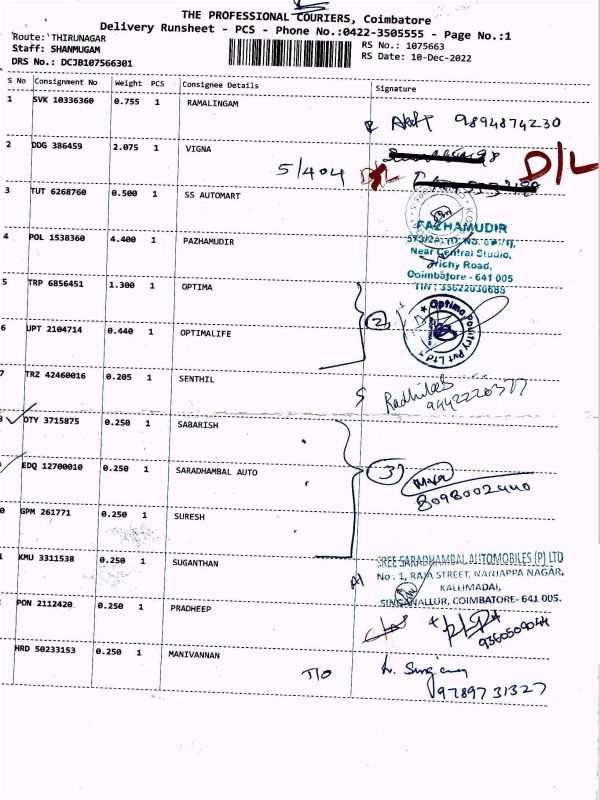 THE PROFESSIONAL COURIERS, Coimbatore
Delivery Runsheet - PCS - Phone No.:0422-3505555 - Page No.:1
Route: THIRUNAGAR
Staff: SHANMUGAM
DRS No.: DCJB107566301
RS No.: 1075663
RS Date: 10-Dec-2022
S No Consignment No Weight PCS Consignee Details Signature
1 SVK 10336360 0.755 1 RAMALINGAM
9894874230
2 DDG 386459 2.075 1 VIGNA
5/404 D/L
3 TUT 6268760 0.500 1 SS AUTOMART
PAZHAMUDIR
4 POL 1538360 4.400 1 PAZHAMUDIR
Near Central Studio,
Trichy Road,
Coimbatore - 641 005
5 TRP 6856451 1.300 1 OPTIMA
2
Optima Poultry Pvt Ltd
6 UPT 2104714 0.440 1 OPTIMALIFE
7 TRZ 42460016 0.205 1 SENTHIL
9442226377
DTY 3715875 0.250 1 SABARISH
EDQ 12700010 0.250 1 SARADHAMBAL AUTO
3
8098002440
0 GPM 261771 0.250 1 SURESH
KMU 3311538 0.250 1 SUGANTHAN
SREE SARADHAMBAL AUTOMOBILES (P) LTD
No : 1, RAJA STREET, NANJAPPA NAGAR,
KALLIMADAI,
SINGANALLUR, COIMBATORE- 641 005.
2 PON 2112420 0.250 1 PRADHEEP
HRD 50233153 0.250 1 MANIVANNAN
T/O
9789731327